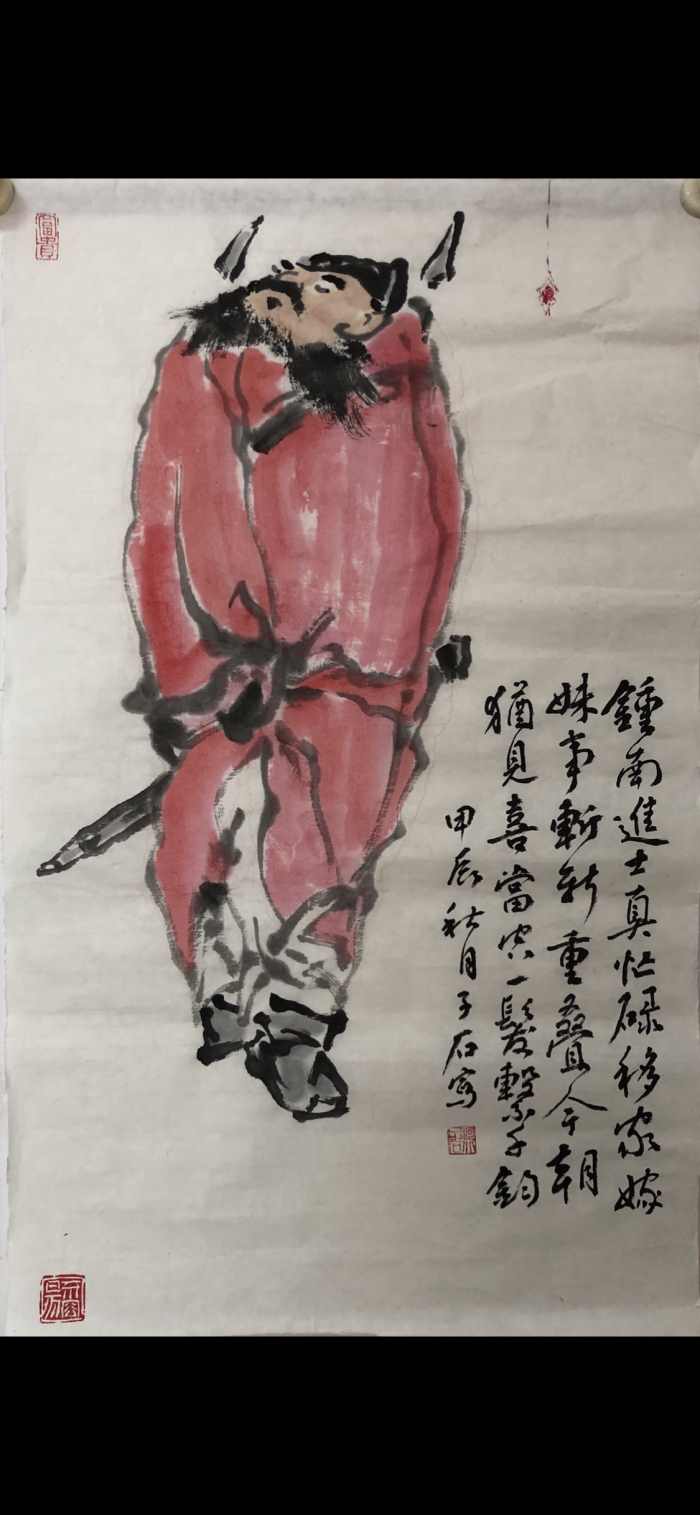 鍾南進士真忙碌移家嫁
妹事斬新重疊今朝
猶見喜當空一髮繫千鈞
甲辰秋月子石寫
富貴